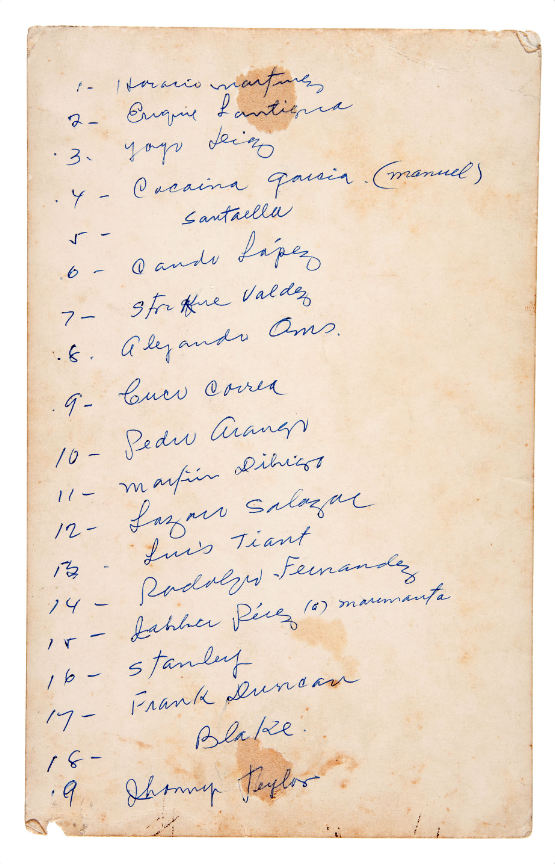 1- Horacio Martinez
2- Enrique Lantigua
3. Yoyo Deiaz
4- Cocaina Garcia. (Manuel)
5- Santaella
6- Cando López
7- Strike Valdez
8. Alejando Oms.
9- Cuco Correa
10- Pedro Arango
11- Martín Dihigo
12- Lazaro Salazar
13- Luis Tiant
14- Rodolfo Fernandez
15- Jabher Pérez (a) maromanta
16- Stanley
17- Frank Duncan
18- Blake.
.9 Jhonny Teylor